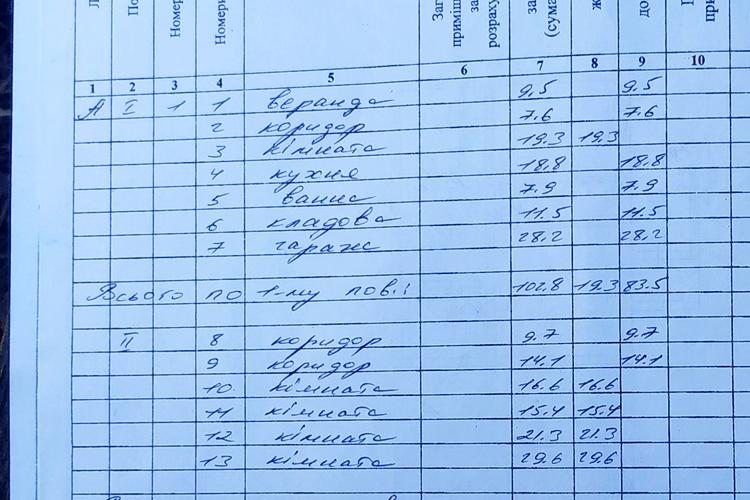 Номери Номери Заг приміщ за розраху за (сума ж до П при
1 2 3 4 5 6 7 8 9 10
А I 1 1 веранда 9,5 9.5
2 коридор 7.6 7.6
3 кімната 19.3 19.3
4 кухня 18.8 18.8
5 ванна 7.9 7.9
6 кладова 11.5 11.5
7 гараж 28,2 28,2
Всього по 1-му пов.: 102,8 19.3 83.5
II 8 коридор 9.7 9.7
9 коридор 14.1 14.1
10. кімната 16.6 16.6
11 кімната 15.4 15.4
12 кімната 21.3 21.3
13 кімната 29.6 29.6